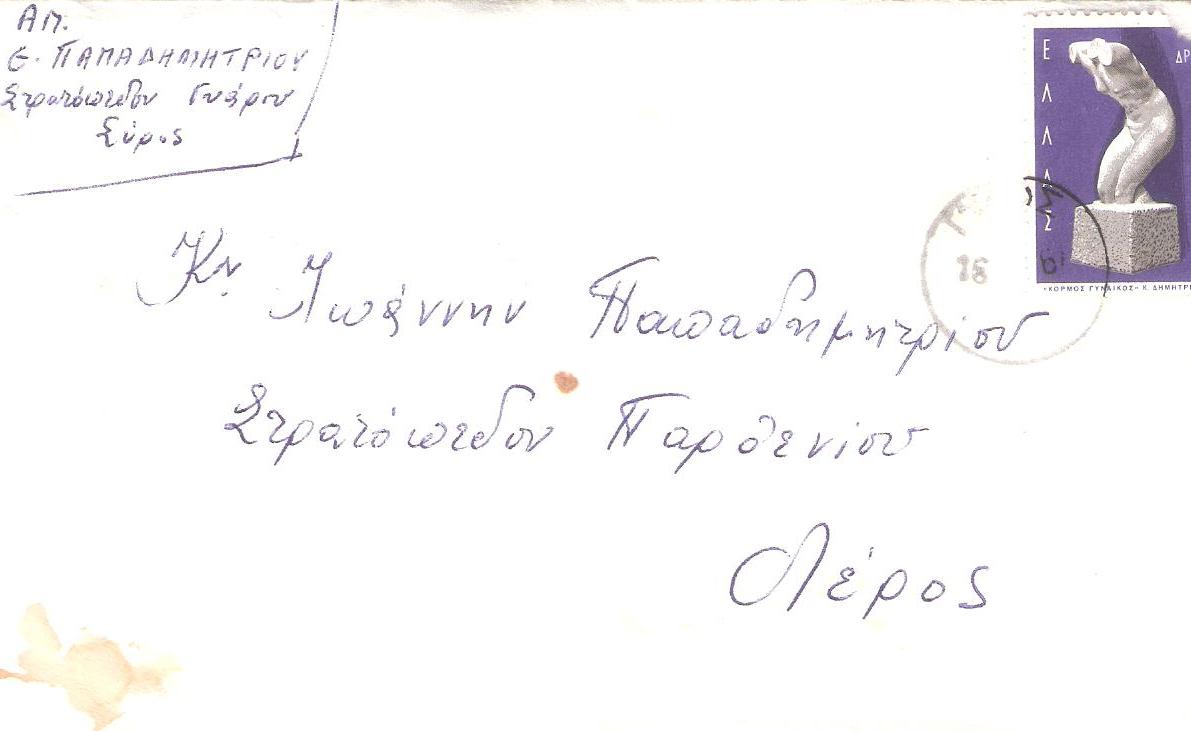 ΑΠ.
Ε. ΠΑΠΑΔΗΜΗΤΡΙΟΥ
Στρατόπεδον Γυάρου
Σύρος
ΕΛΛΑΣ
ΔΡ
«ΚΟΡΜΟΣ ΓΥΝΑΙΚΟΣ» Κ. ΔΗΜΗΤΡΙ
16
Κν. Ιωάννην Παπαδημητρίου
Στρατόπεδον Παρθενίου
Λέρος